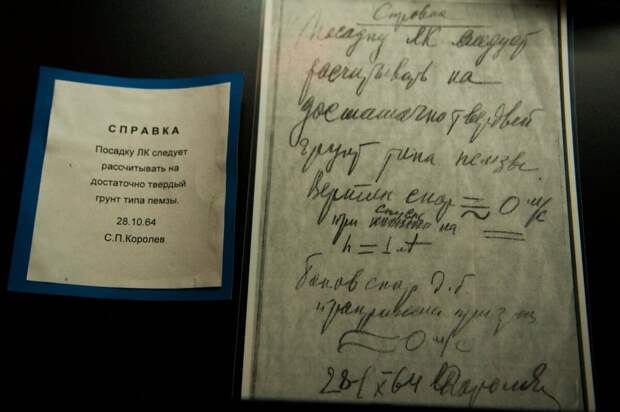 СПРАВКА
Посадку ЛК следует
рассчитывать на
достаточно твердый
грунт типа пемзы.
28.10.64
С.П.Королев
Справка
Посадку ЛК следует
расчитывать на
достаточно твердый
грунт типа пемзы.
Вертик скор ≈ 0 м/с
при на
h = 1 м
Боков скор д.б.
≈ 0 м/с
28/X 64 Королев